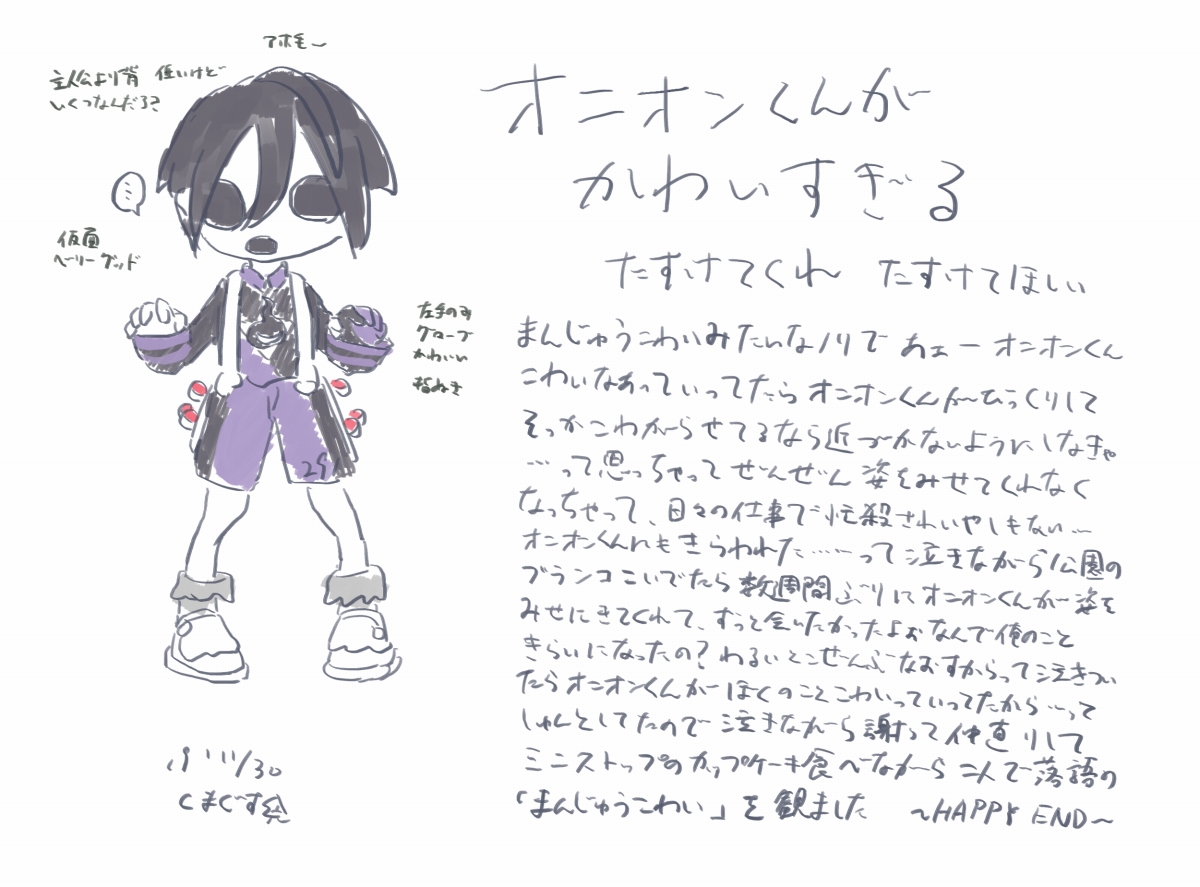 アホ毛〜
主人公より背 低いけど
いくつなんだろ?
仮面
ベリーグッド
左手のみ
グローブ
かわいい
指ぬき
29
19 11/30
くまぐす絵
オニオンくんが
かわいすぎる
たすけてくれ たすけてほしい
まんじゅうこわいみたいなノリで あェー オニオンくん
こわいなあっていってたら オニオンくんがびっくりして
そっか こわがらせてるなら近づかないようにしなきゃ
…って思っちゃって ぜんぜん 姿をみせてくれなく
なっちゃって、日々の仕事で忙殺されいやしもない…
オニオンくんにもきらわれた……って泣きながら公園の
ブランコこいでたら 数週間ぶりに オニオンくんが姿を
みせにきてくれて、ずっと会いたかったよぉ なんで俺のこと
きらいになったの?わるいとこぜんぶなおすからって泣きつい
たらオニオンくんが ぼくのことこわいっていってたから…って
しゅんとしてたので 泣きながら謝って仲直りして
ミニストップのカップケーキ食べながら 二人で落語の
「まんじゅうこわい」を観ました 〜HAPPY END〜